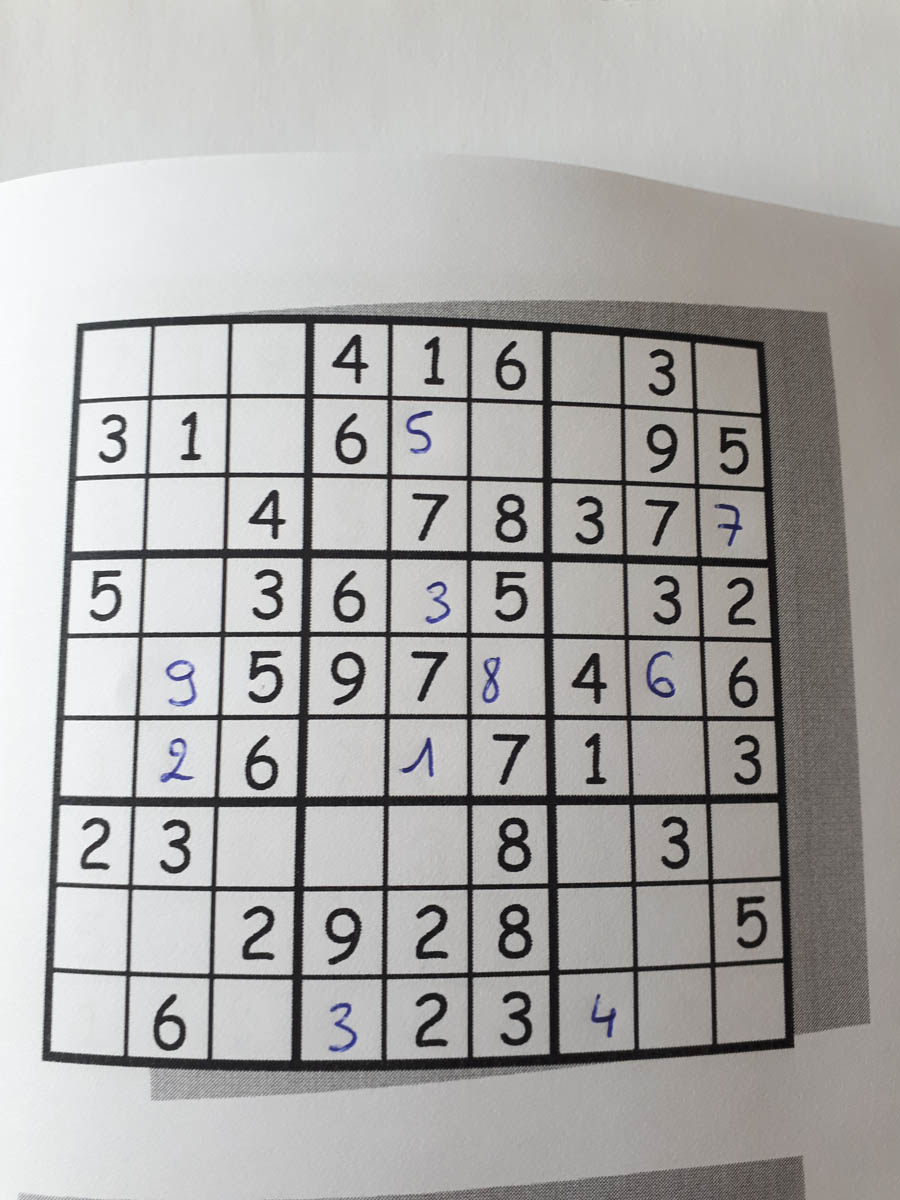 4 1 6 3
3 1 6 5 9 5
4 7 8 3 7 7
5 3 6 3 5 3 2
9 5 9 7 8 4 6 6
2 6 1 7 1 3
2 3 8 3
2 9 2 8 5
6 3 2 3 4